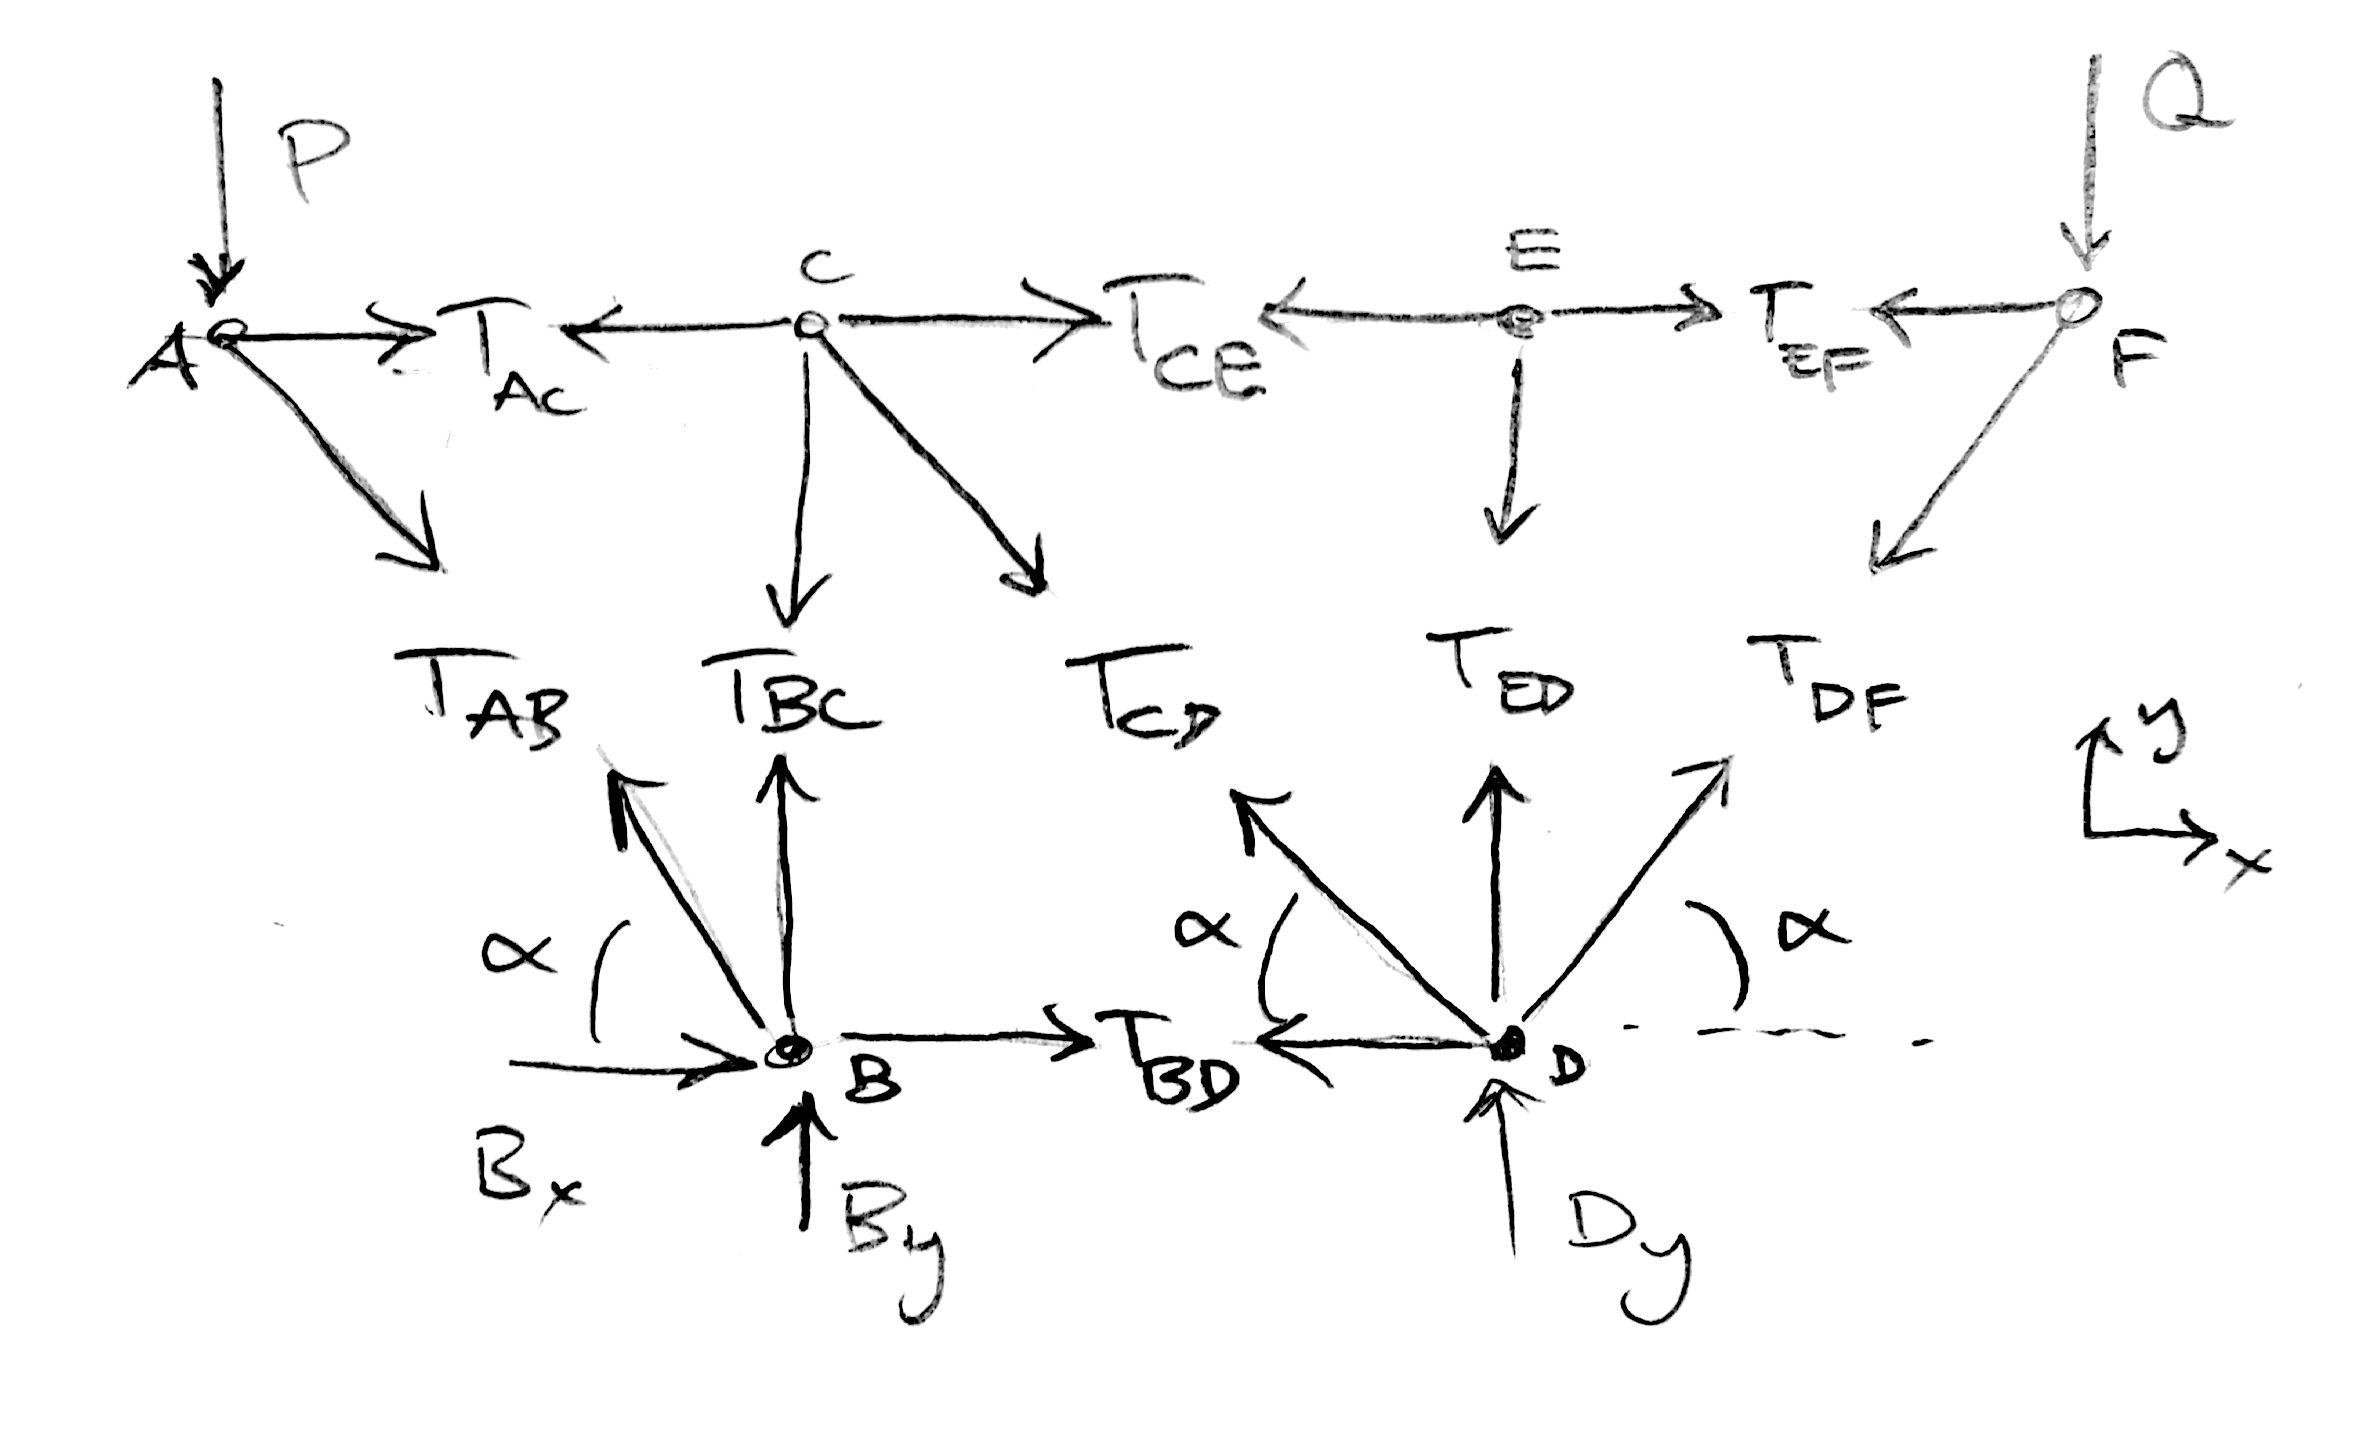 P Q
C E
A T_AC T_CE T_EF F
T_AB T_BC T_CD T_ED T_DF
y
x
α α α
B T_BD D
B_x B_y D_y